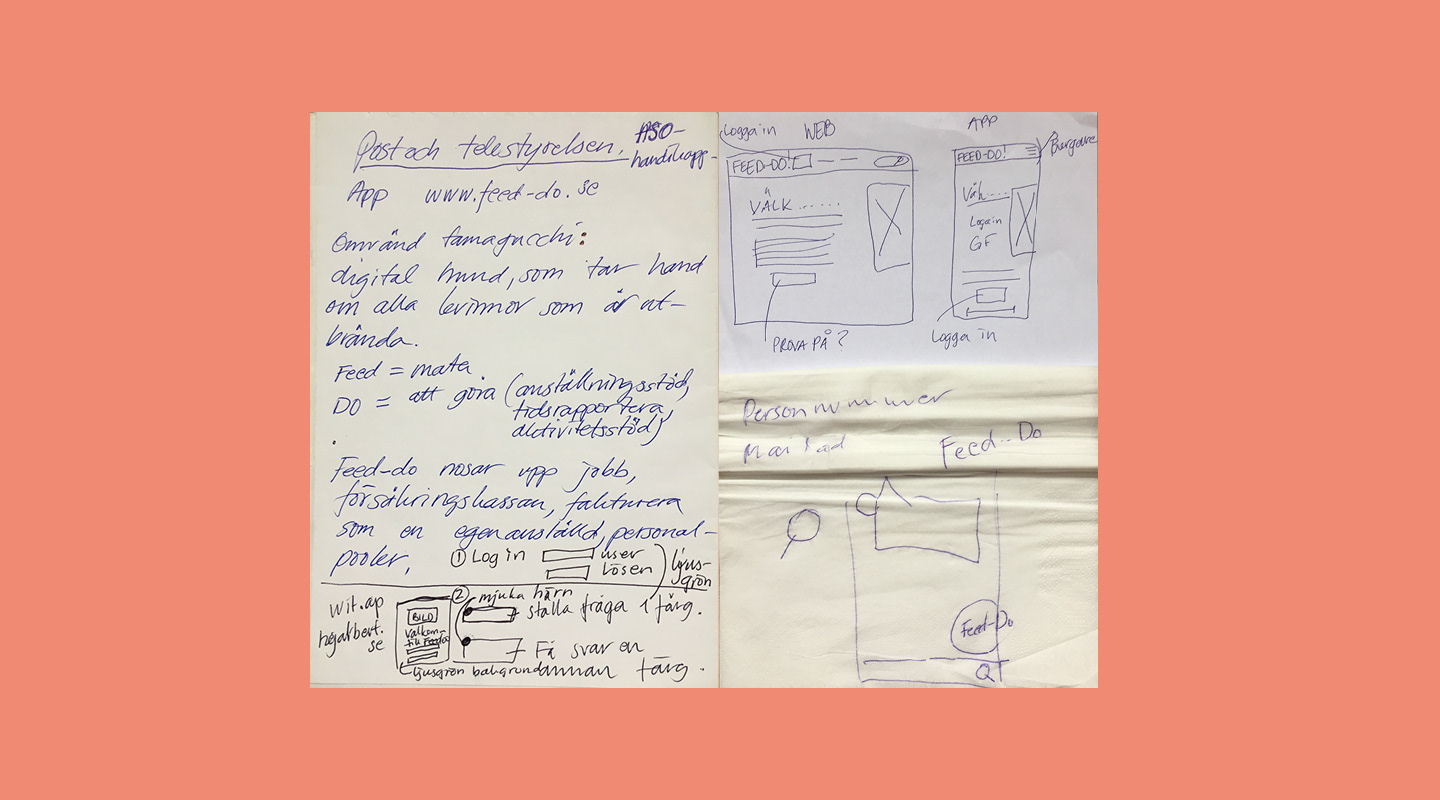 Post och telestyrelsen.
HSO-
handikapp-
App www.feed-do.se
Omvänd tamagucchi:
digital hund, som tar hand
om alla kvinnor som är ut-
brända.
Feed = mata.
Do = att göra (anställningsstöd,
tidsrapportera,
aktivitetsstöd)
Feed-do nosar upp jobb,
försäkringskassan, fakturera
som en egenanställd, personal-
pooler,
① Log in user
lösen
ljus-
grön
wit.ap
hejalbert.
se
BILD
Välkom-
till Feeddo
② mjuka hörn
ställa fråga i färg.
Få svar en
annan färg.
ljusgrön bakgrund
Logga in WEB
FEED-DO!
VÄLK......
PROVA PÅ?
APP
Burgare
FEED-DO!
Väl....
Loga in
GF
Logga in
Personnummer
Feed-Do
Feed-Do